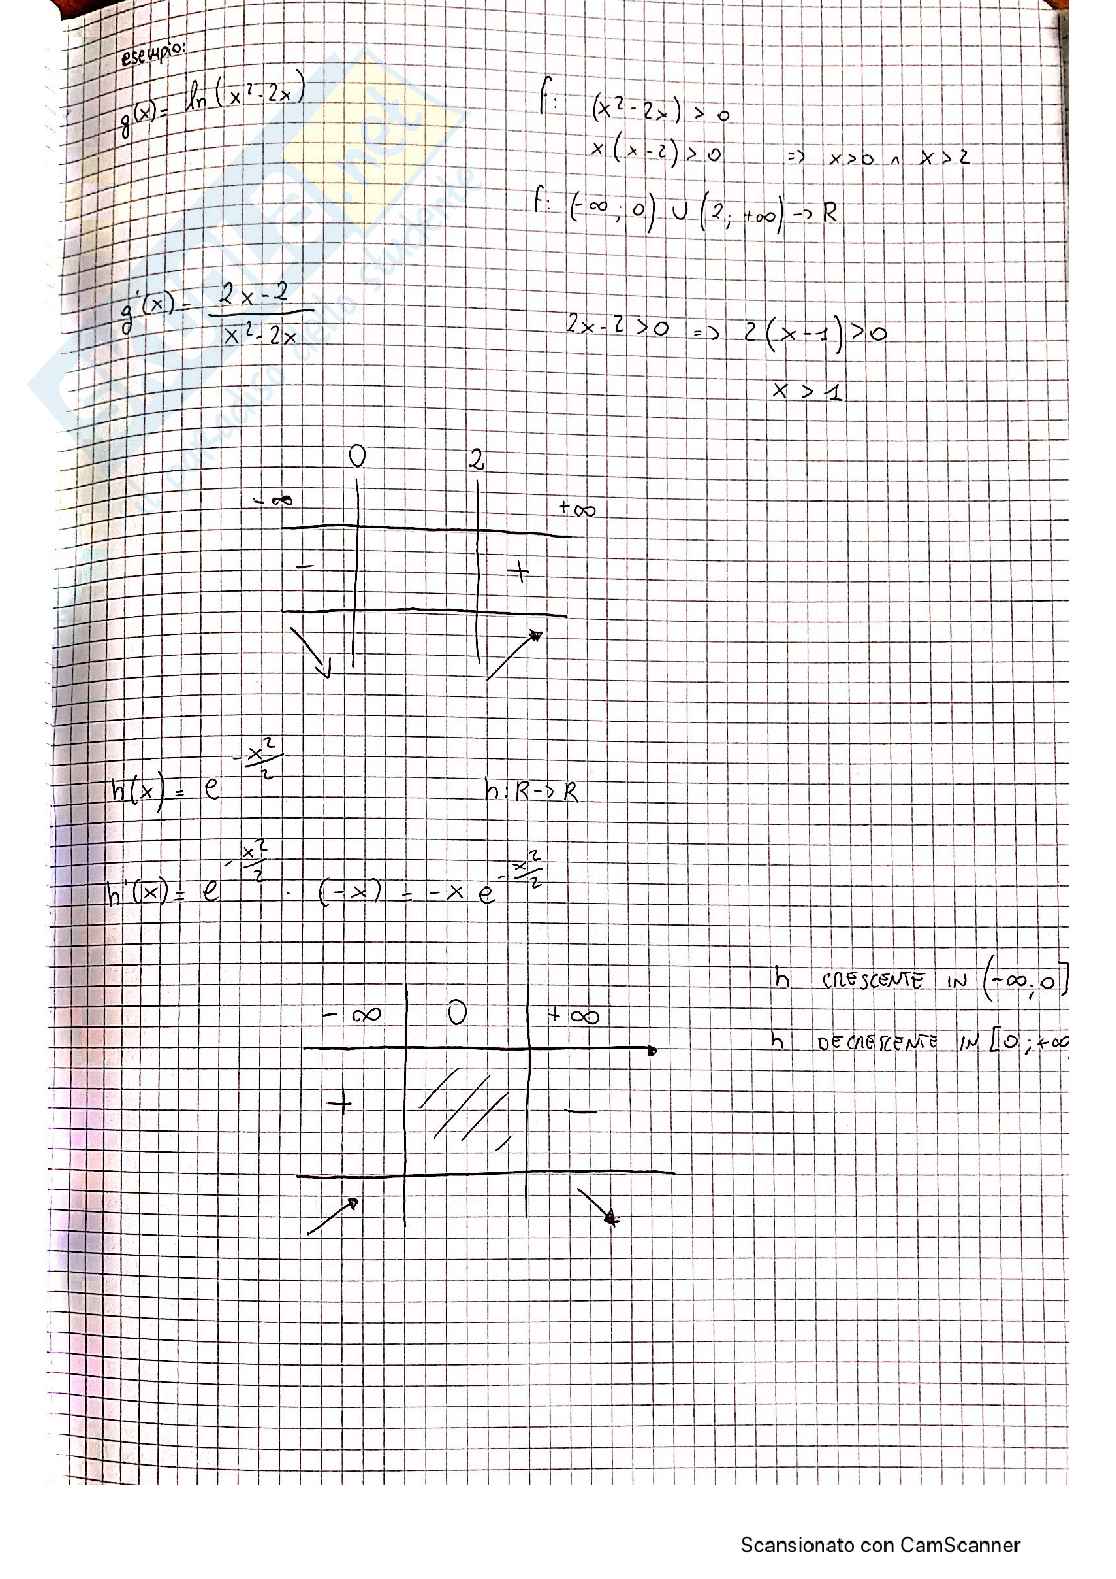 esempio:
g(x) = ln(x² - 2x)
f: (x² - 2x) > 0
x(x - 2) > 0 => x > 0 ∧ x > 2
f: (-∞; 0) ∪ (2; +∞) -> R
g'(x) = \frac{2x - 2}{x² - 2x}
2x - 2 > 0 => 2(x - 1) > 0
x > 1
0 2
-∞ +∞
- +
h(x) = e^{-\frac{x²}{2}} h: R -> R
h'(x) = e^{-\frac{x²}{2}} · (-x) = -x e^{-\frac{x²}{2}}
h CRESCENTE IN (-∞; 0]
h DECRESCENTE IN [0; +∞
-∞ 0 +∞
+ -
Scansionato con CamScanner